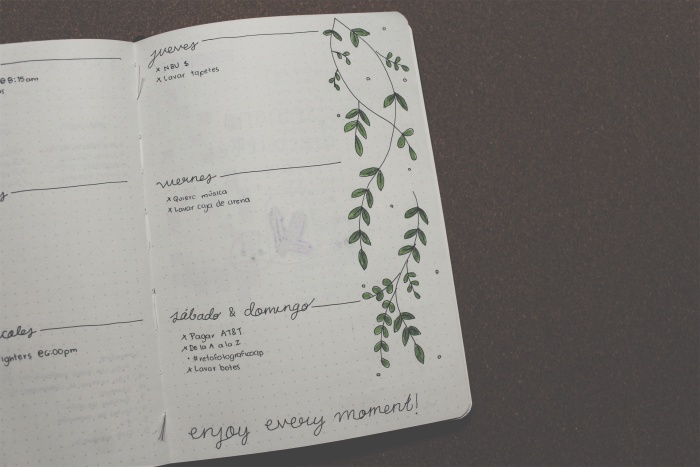 @8:15am
jueves
x NBU $
x Lavar tapetes
viernes
x Quierc música
x Lavar caja de arena
sábado & domingo
x Pagar AT&T
x De la A a la Z
• #retofotograficoap
x Lavar botes
coles
ighters @6:00pm
enjoy every moment!